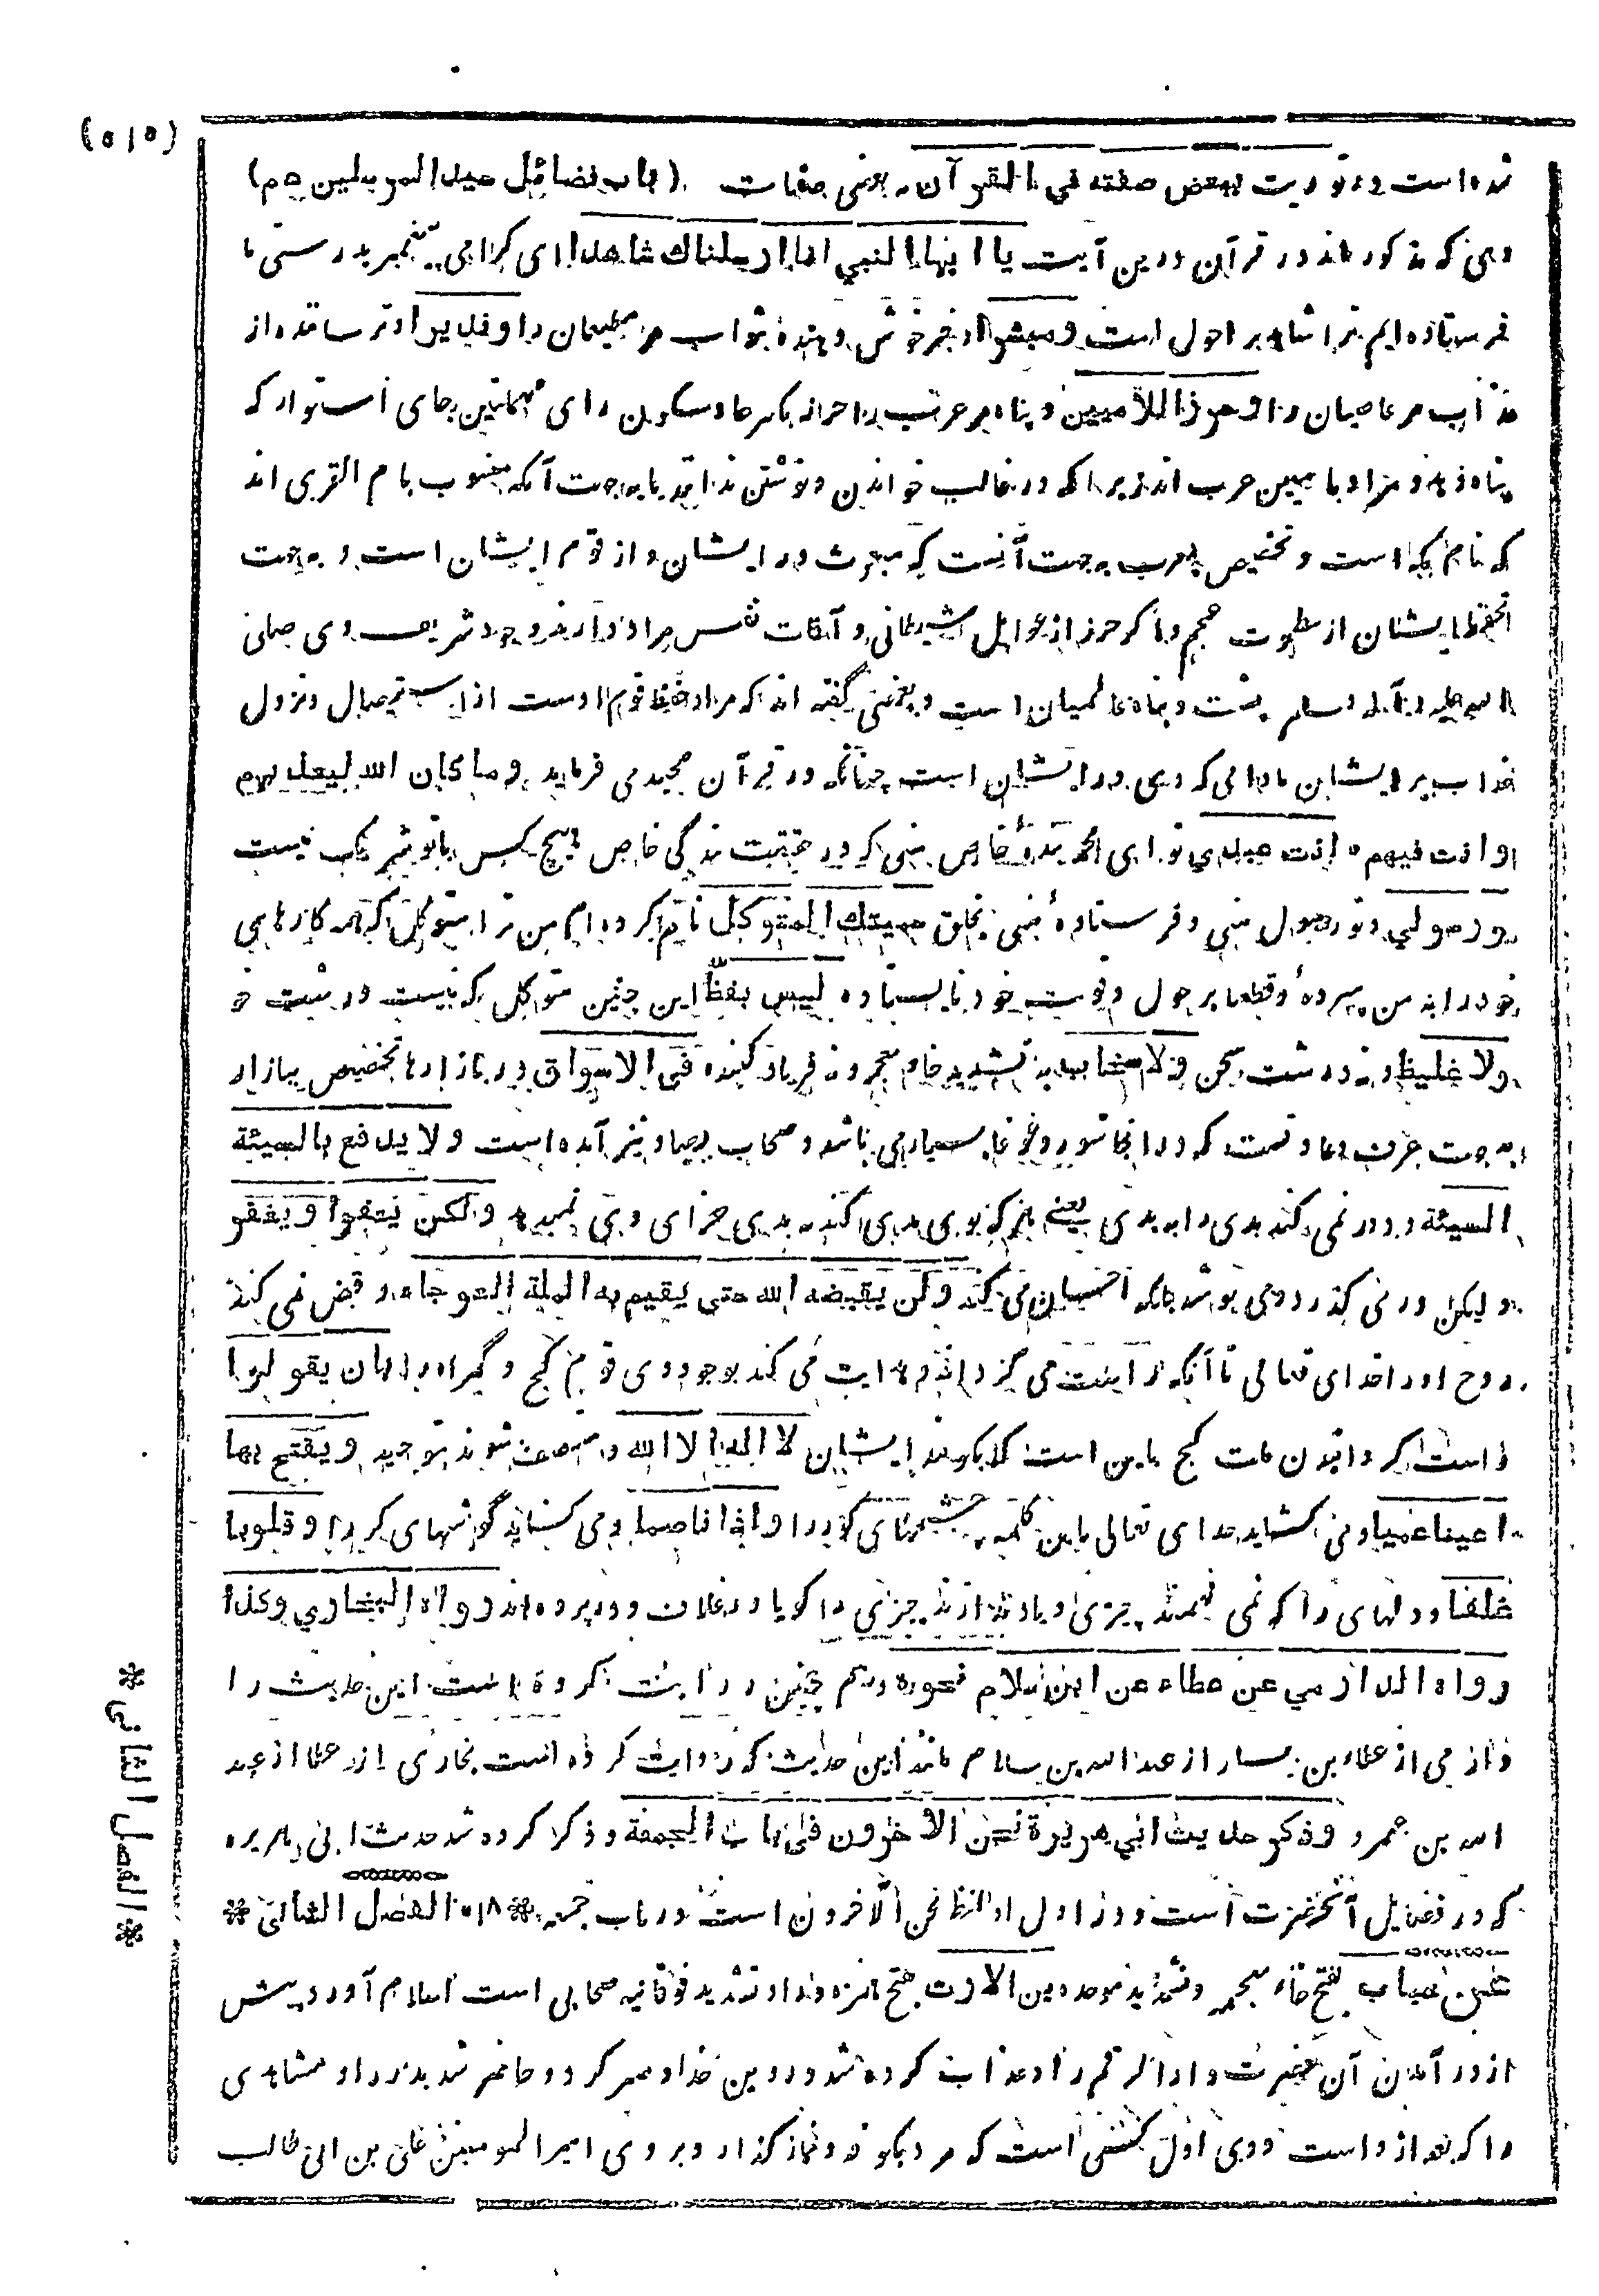 (٥١٥)
شده است در توریت ببعض صفته في القرآن بعضی صفات (باب فضائل سيد المرسلين ص م)
وی که مذکور اند در قرآن درین آیت يا ايها النبي انا ارسلناك شاهدا ای گرامی پیغمبر بدرستی ما
فرستاده ایم ترا شاهد بر احوال امت و مبشرا و خبر خوش دهنده بثواب مر مطیعان را و نذيرا و ترساننده از
عذاب مر عاصیان را و حرزا للاميين و پناه مر عرب را حرز بکسر حا و سکون رای مهملتین جای استوار که
پناه دهد و مراد بامیین عرب اند زیرا که در غالب خواندن و نوشتن ندانند یا به جهت آنکه منسوب بام القری اند
که نام مکه است و تخصیص بعرب به جهت آنست که مبعوث در ایشان و از قوم ایشان است و به جهت
تحفظ ایشان از سطوت عجم و اگر حرز از غوایل شیطانی و آفات نفس مراد دارند وجود شریف وی صلی
الله علیه و آله و سلم پشت و پناه عالمیان است و بعضی گفته اند که مراد حفظ قوم اوست از استیصال و نزول
عذاب بر ایشان مادامی که وی در ایشان است چنانکه در قرآن مجید می فرماید و ما كان الله ليعذبهم
و انت فيهم ه انت عبدي تو ای محمد بندۀ خاص منی که در حقیقت بندگی خاص هیچ کس با تو شریک نیست
و رسولي و تو رسول منی و فرستادۀ منی بخلق سميتك المتوكل نام کرده ام من ترا متوکل که همه کارهای
خود را به من سپردۀ و قطعا بر حول و قوت خود نایستاده ليس بفظ این چنین متوکل که نیست درشت خو
ولا غليظ و نه درشت سخن و لا سخاب به تشدید خاء معجمه و نه فریاد کننده في الاسواق در بازارها تخصیص ببازار
به جهت عرف و عادتست که در آنجا شور و غوغا بسیار می باشد و صخاب بصاد نیز آمده است و لا يدفع بالسيئة
السيئة و دور نمی کند بدی را به بدی یعنی هر که بوی بدی کند به بدی جزای وی نمیدهد ولكن يعفوا و يغفر
و لیکن در می گذرد و می پوشد بلکه احسان می کند و لن يقبضه الله حتى يقيم به الملة العوجاء و قبض نمی کند
روح او را خدای تعالی تا آنکه راست می گرداند و هدایت می کند بوجود وی قوم کج و گمراه را بان يقولوا
راست گردانیدن ملت کج باین است که بگویند ایشان لا اله الا الله و متصف شوند بتوحید و يفتح بها
اعينا عميا و می کشاید خدای تعالی باین کلمه چشمهای کور را و اذانا صما و می کشاید گوشهای کر را و قلوبا
غلفا و دلهای را که نمی فهمند چیزی و یاد ندارند چیزی را گویا در غلاف و در پرده اند رواه البخاري و كذا
رواه الدارمي عن عطاء عن ابن سلام نحوه و هم چنین روایت کرده است این حدیث را
دارمی از عطاء بن یسار از عبد الله بن سلام مانند این حدیث که روایت کرده است بخاری از عطا از عبد
الله بن عمرو و ذكر حديث ابي هريرة نحن الآخرون في باب الجمعة و ذکر کرده شد حدیث ابی هریره
که در فضایل آنحضرت است و در اول او لفظ نحن الآخرون است در باب جمعه * ١٨ه الفصل الثاني *
عن خباب بفتح خاء معجمه و تشدید موحده بن الارت بفتح همزه و را و تشدید فوقانیه صحابی است اسلام آورد پیش
از در آمدن آن حضرت دار ارقم را و عذاب کرده شد در دین خدا و صبر کرد و حاضر شد بدر را و مشاهدی
را که بعد از و است و وی اول کسی است که مرد بکوفه و نماز گذارد بر وی امیر المومنین علی بن ابی طالب
* الفصل الثاني *